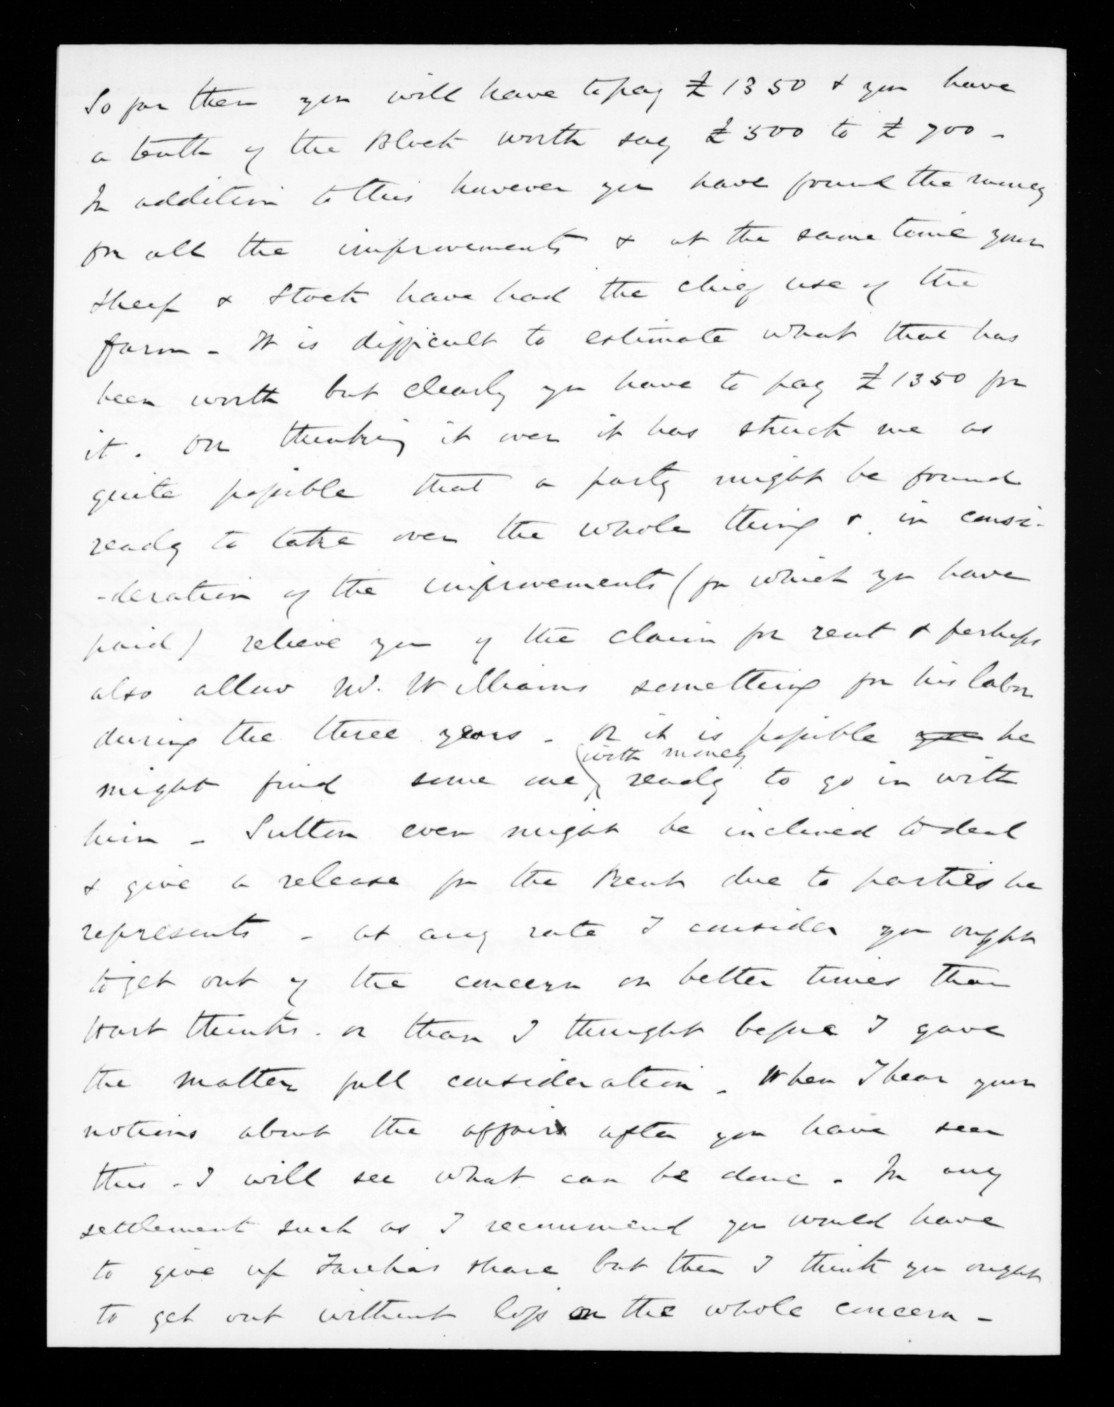 So far then you will have to pay £1350 & you have
a tenth of the Block worth say £500 to £700 -
In addition to this however you have found the money
for all the improvements & at the same time your
sheep & Stock have had the chief use of the
farm - It is difficult to estimate what that has
been worth but clearly you have to pay £1350 for
it. On thinking it over it has struck me as
quite possible that a party might be found
ready to take over the whole thing & in consi-
-deration of the improvements (for which you have
paid) relieve you of the claim for rent & perhaps
also allow W. Williams something for his labor
during the three years - Or it is possible he
might find some one (with money) ready to go in with
him - Sutton even might be inclined to deal
& give a release for the Rent due to parties he
represents - at any rate I consider you ought
to get out of the concern on better times than
Hart thinks. or than I thought before I gave
the matter full consideration - When I hear your
notions about the affair after you have seen
this - I will see what can be done - In any
settlement such as I recommend you would have
to give up share but then I think you ought
to get out without loss on the whole concern -